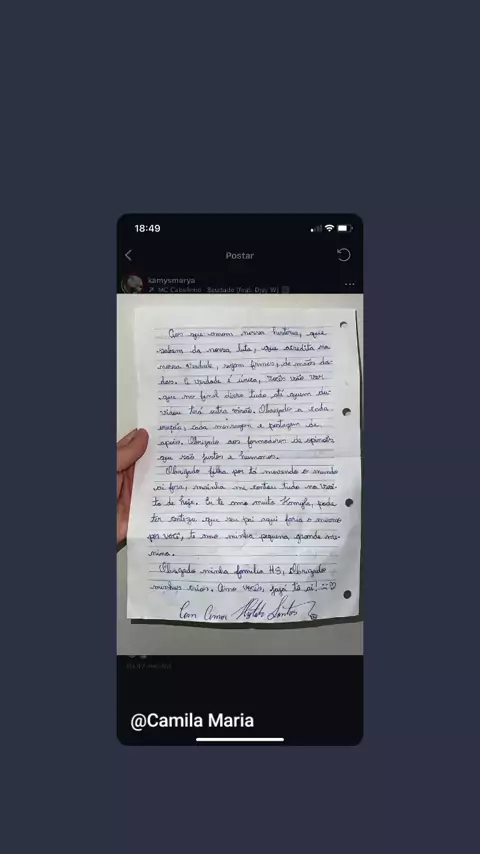 18:49
Postar
kamysmarya
MC Cabelinho Saudade (feat. Djay W)
Aos que amam nossa história, que
sabem da nossa luta, que acredita na
nossa verdade, sejam firmes, de mãos da-
das. A verdade é única, vocês vão ver
que no final disso tudo até quem du-
vidou terá outra visão. Obrigado a cada
oração, cada mensagem e postagem de
apoio. Obrigado aos formadores de opinião
que são justos e humanos.
Obrigado filha por tá movendo o mundo
aí fora, mainha me contou tudo na visi-
ta de hoje. Eu te amo muito Kamyla, pode
ter certeza que seu pai aqui faria o mesmo
por você, te amo minha pequena grande me-
nina.
Obrigado minha família HS, Obrigado
minhas crias. Amo vocês, já já tô aí!
Com Amor Hytalo Santos
@Camila Maria